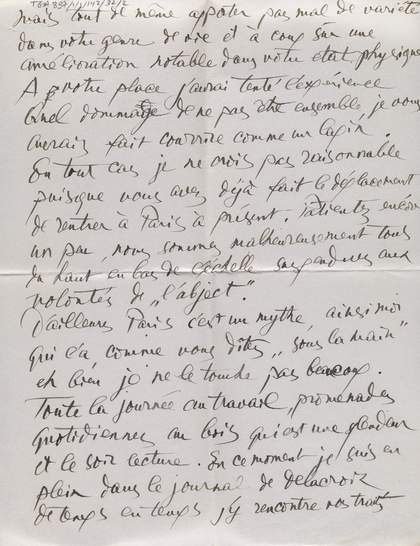 TGA 857/1/1/142/32/2
mais tout de même apporter pas mal de variété
dans votre genre de vie et à coup sûr une
amélioration notable dans votre état physique
A votre place j'aurai tenté l'expérience
Quel dommage de ne pas être ensemble je vous
aurais fait courrire comme un lapin.
En tout cas je ne crois pas raisonnable
puisque vous avez déjà fait le déplacement
de rentrer à Paris à présent. Patientez encore
un peu, nous sommes malheureusement tous
du haut en bas de l'échelle suspendues aux
volontés de "l'abject".
D'ailleurs Paris c'est un mythe, ainsi moi
qui l'a comme vous dîtes "sous la main"
eh bien je ne le touche pas beaucoup.
Toute la journée au travail, promenades
quotidiennes au bois qui est une splendeur
et le soir lecture. En ce moment je suis en
plein dans le journal de Delacroix
de temps en temps j'y rencontre nos traits